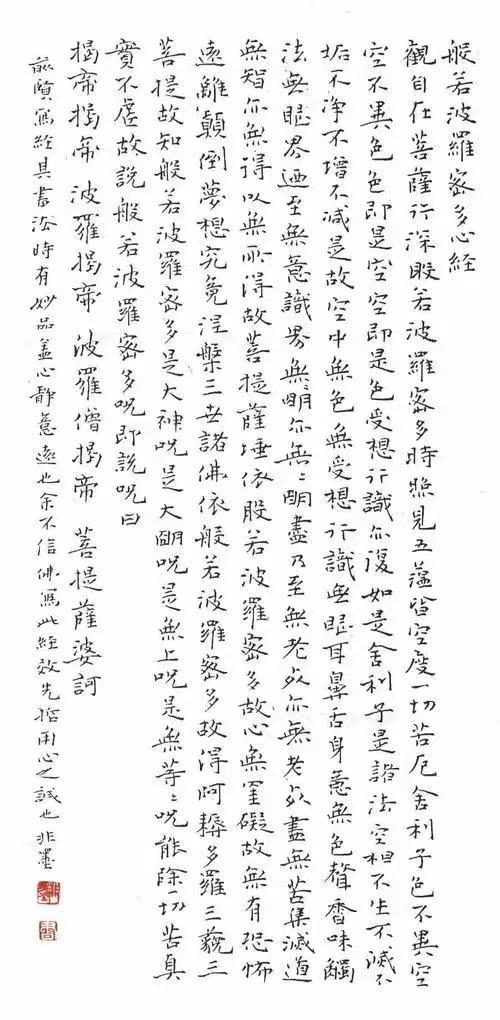 般若波羅密多心經
觀自在菩薩行深般若波羅密多時照見五蘊皆空度一切苦厄舍利子色不異空
空不異色色即是空空即是色受想行識亦復如是舍利子是諸法空相不生不滅不
垢不淨不增不減是故空中無色無受想行識無眼耳鼻舌身意無色聲香味觸
法無眼界迺至無意識界無〻明亦無〻明盡乃至無老死亦無老死盡無苦集滅道
無智亦無得以無所得故菩提薩埵依般若波羅密多故心無罣礙故無有恐怖
遠離顛倒夢想究竟涅槃三世諸佛依般若波羅密多故得阿耨多羅三藐三
菩提故知般若波羅密多是大神咒是大明咒是無上咒是無等〻咒能除一切苦真
實不虛故說般若波羅密多咒即說咒曰
揭帝揭帝 波羅揭帝 波羅僧揭帝 菩提薩婆訶
前賢寫經具書法時有妙品蓋心靜意遠也余不信佛寫此經效先哲用心之誠也 非墨